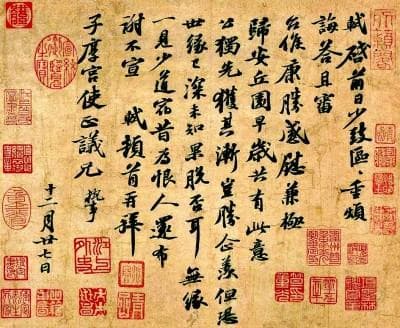 軾啓前日少致區區重煩
誨答且審
台候康勝感慰兼極
歸安丘園早歲共有此意
公獨先獲其漸豈勝企羨但恐
世縁已深未知果脫否耳無縁
一見少道宿昔為恨人還布
謝不宣 軾頓首再拜
子厚宮使正議兄 執事
十二月廿七日